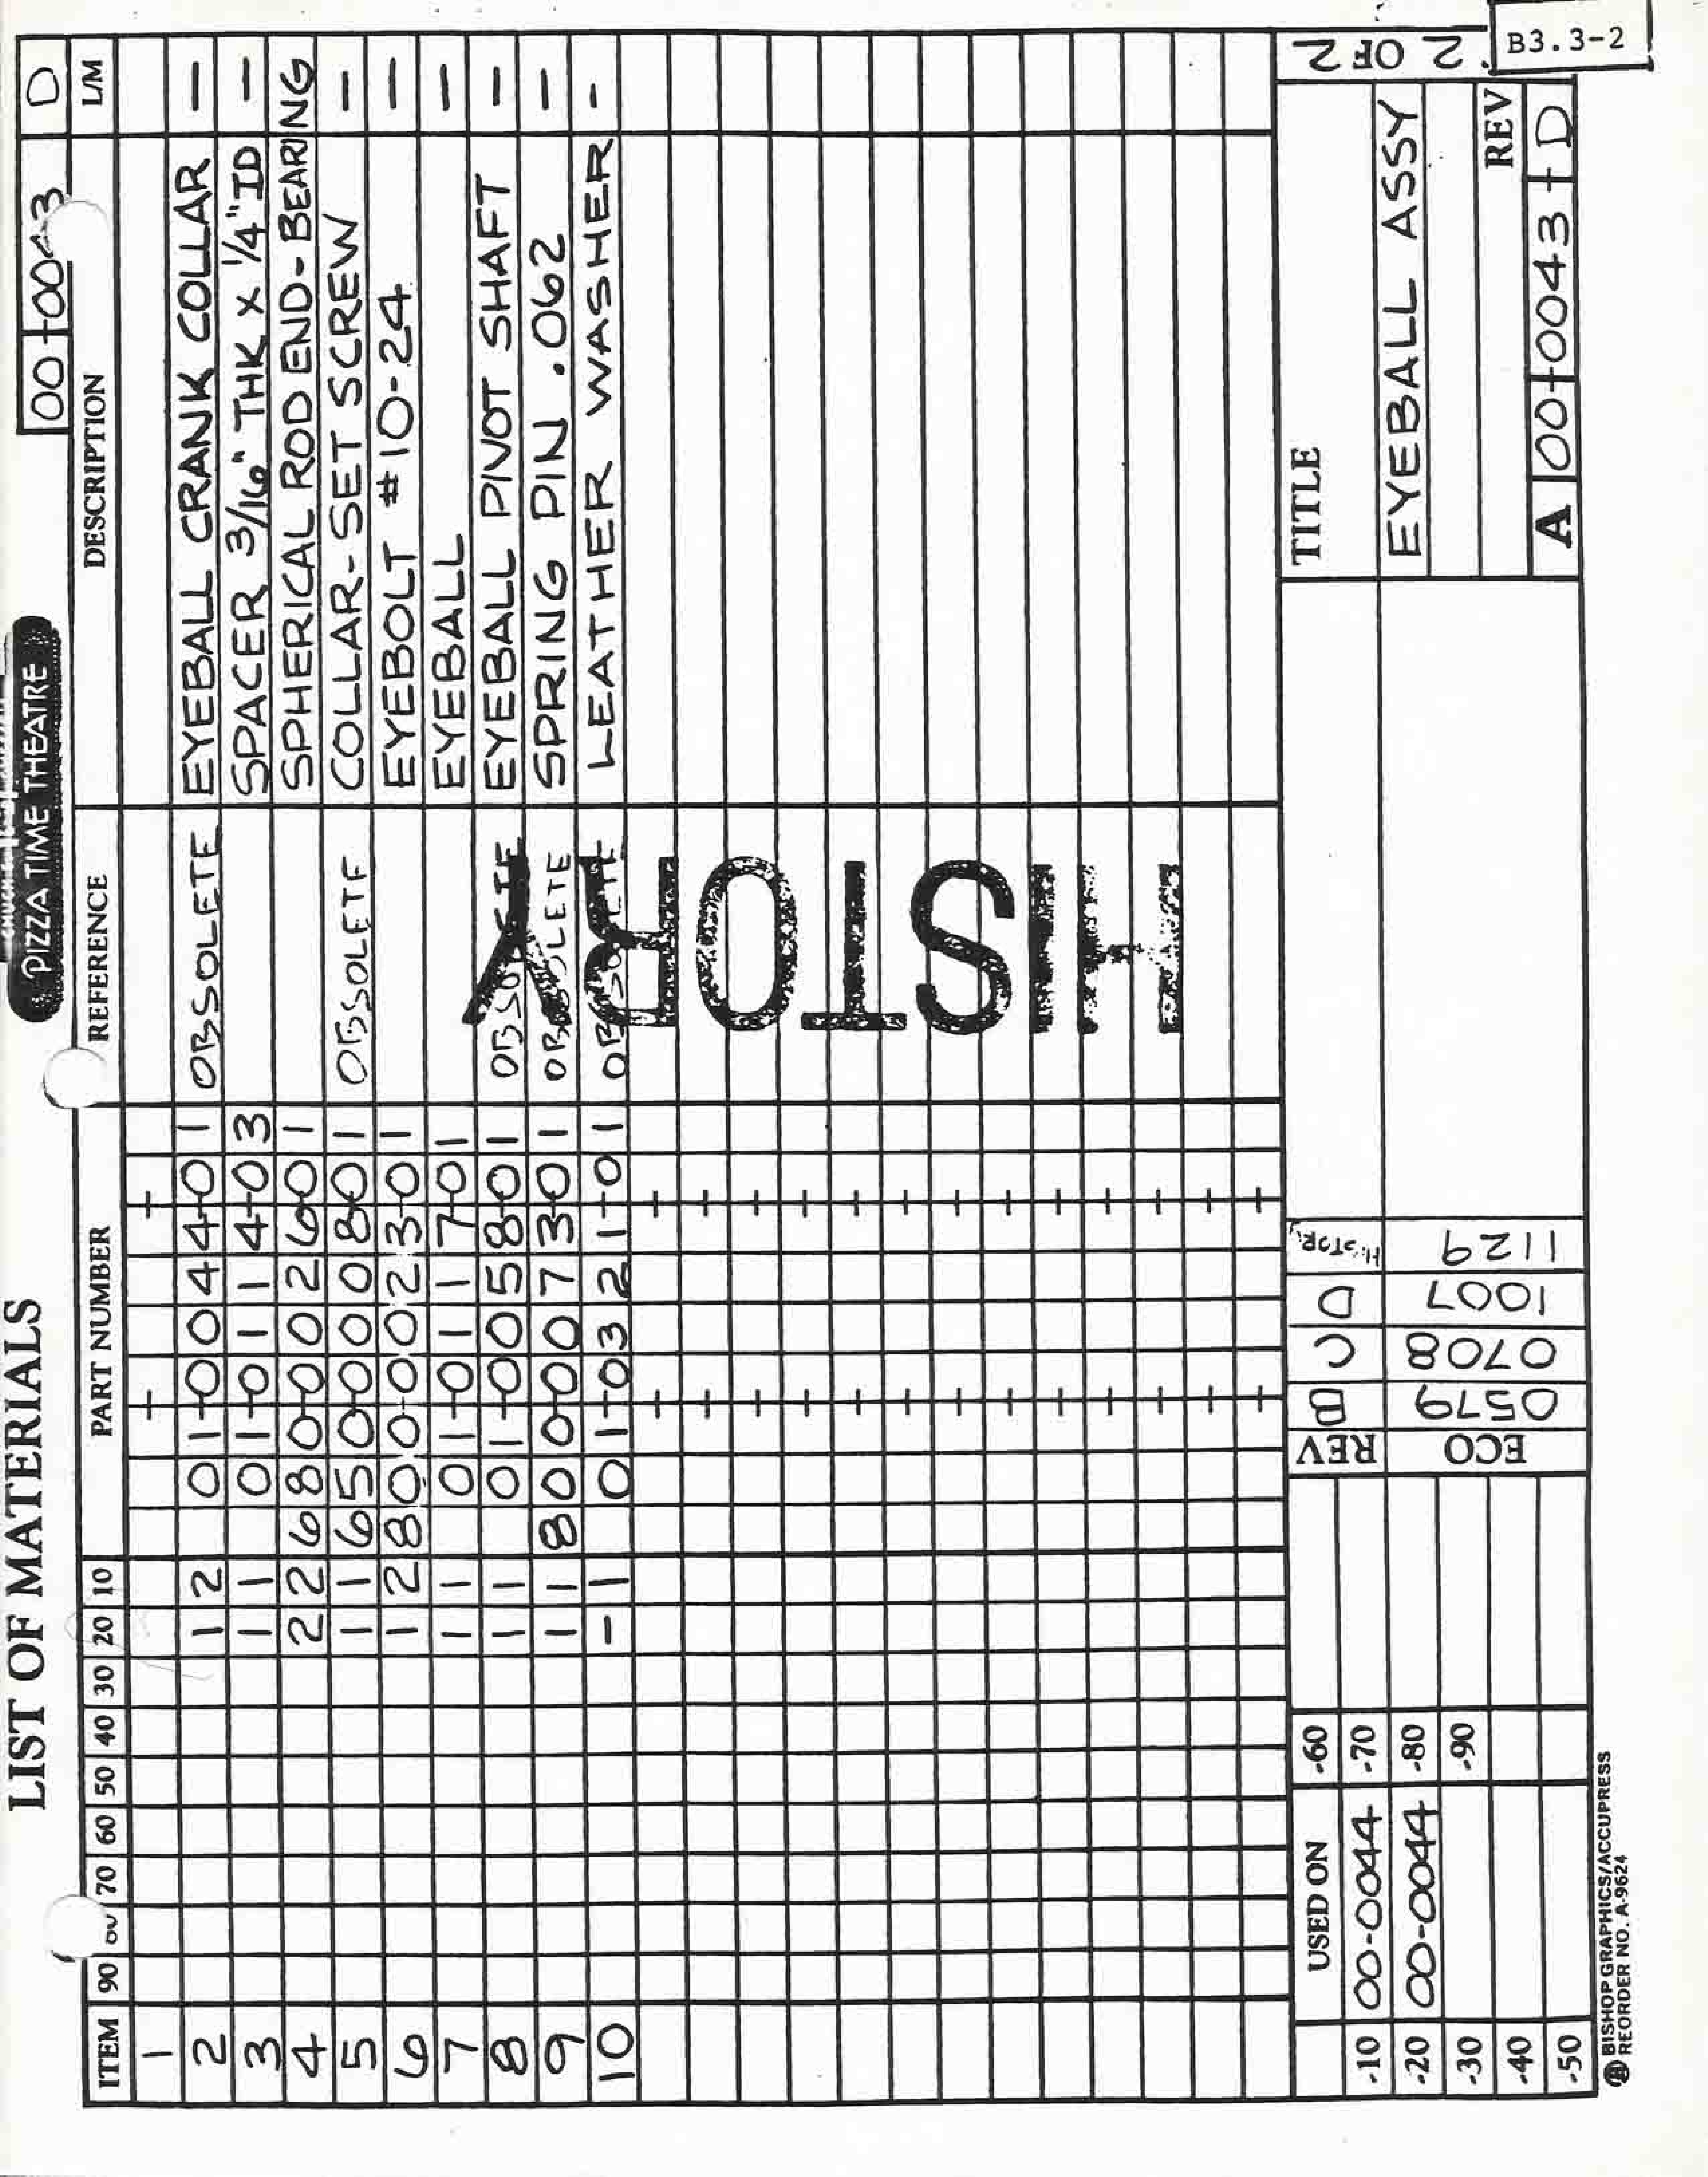 LIST OF MATERIALS
PIZZA TIME THEATRE
00-0043 D
ITEM 90 70 60 50 40 30 20 10 PART NUMBER REFERENCE DESCRIPTION L/M
1
2 1 2 01-0044-01 OBSOLETE EYEBALL CRANK COLLAR —
3 1 1 01-0114-03 SPACER 3/16" THK x 1/4" ID —
4 2 2 680-0026-01 SPHERICAL ROD END-BEARING
5 1 1 650-0008-01 OBSOLETE COLLAR-SET SCREW —
6 1 2 800-0023-01 EYEBOLT #10-24 —
7 1 1 01-0117-01 EYEBALL —
8 1 1 01-0058-01 OBSOLETE EYEBALL PIVOT SHAFT —
9 1 1 800-0073-01 OBSOLETE SPRING PIN .062 —
10 - 1 01-0321-01 OBSOLETE LEATHER WASHER -
HISTORY
USED ON
-10 00-0044 -60
-20 00-0044 -70
-30 -80
-40 -90
-50
REV B C D HISTORY
ECO 0579 0708 1007 1129
TITLE
EYEBALL ASSY
REV
A 00-0043-D
2 OF 2
B3.3-2
BISHOP GRAPHICS/ACCUPRESS
REORDER NO. A-9624